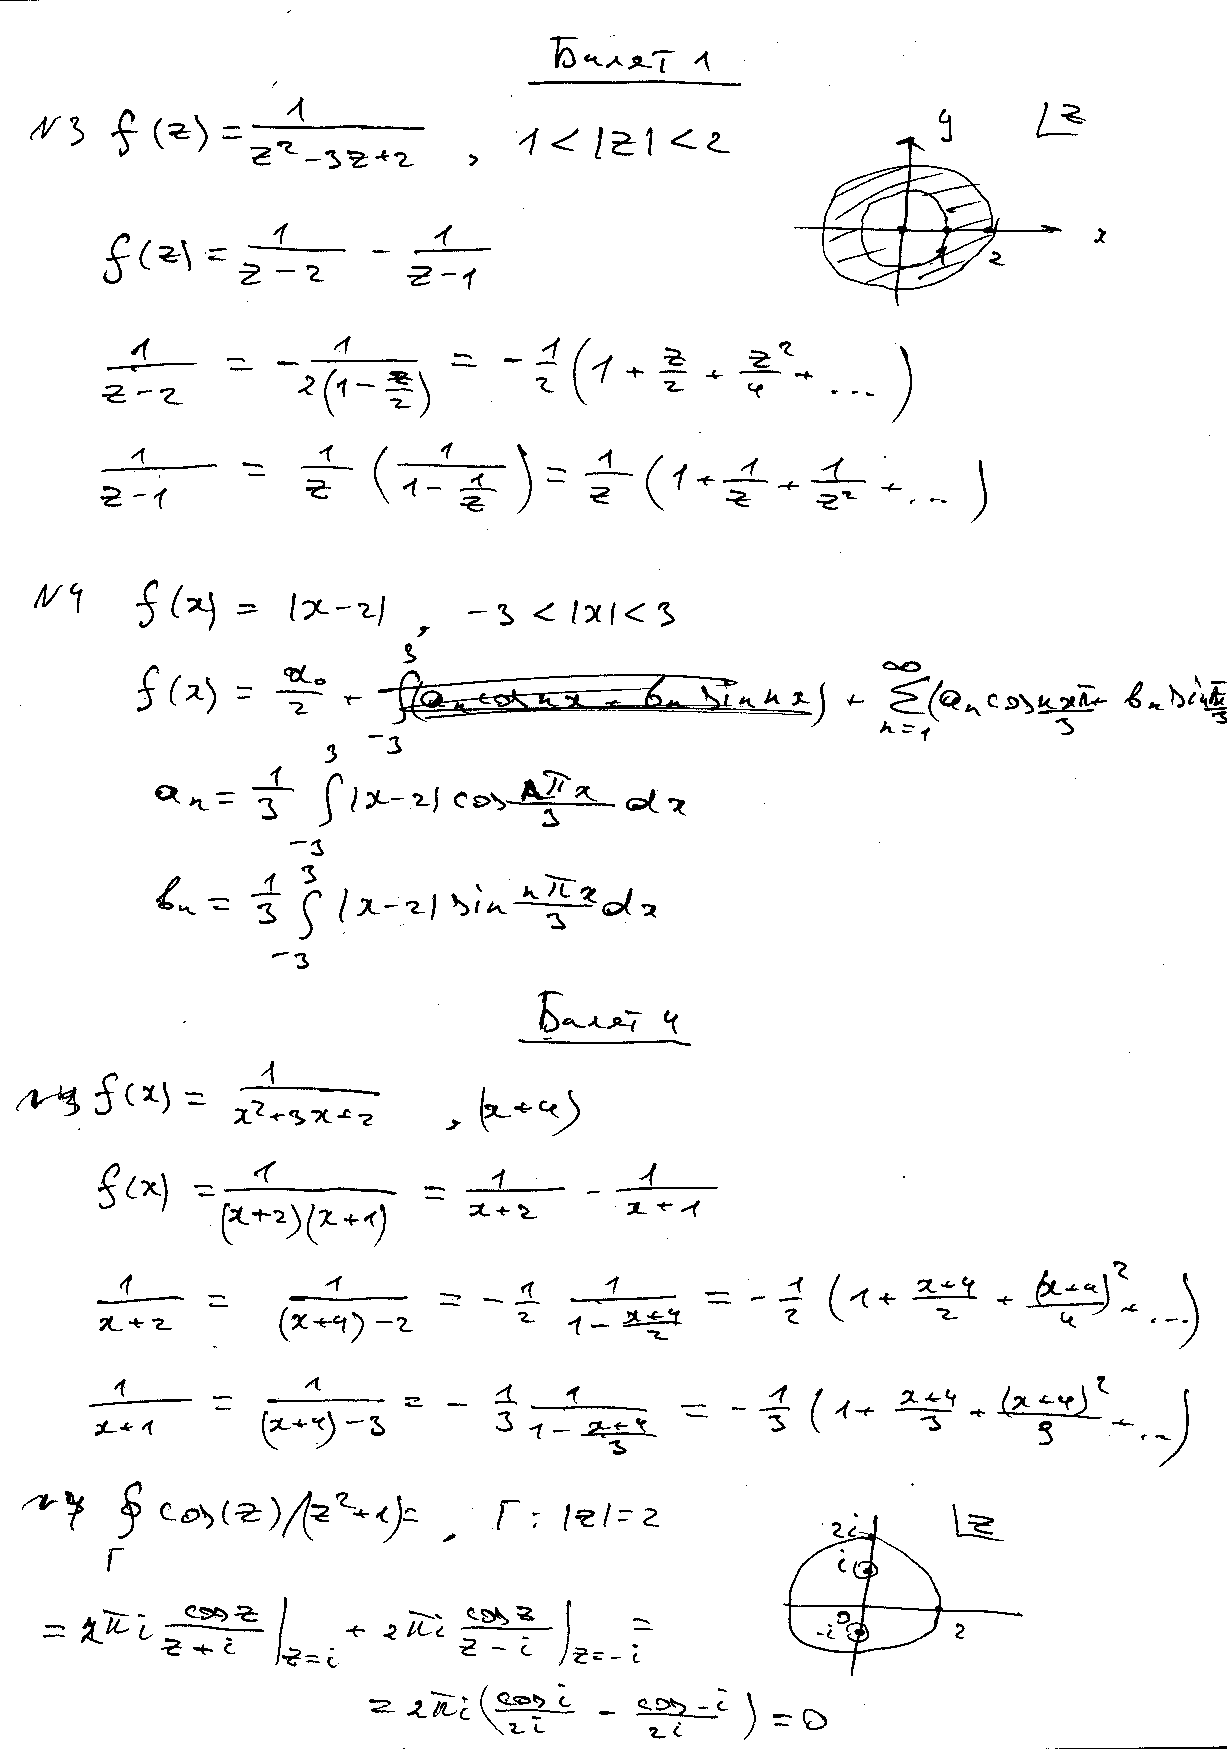 Билет 1
N3 f(z) = 1/(z²-3z+2), 1<|z|<2
y
⌊z
x
2
f(z) = 1/(z-2) - 1/(z-1)
1/(z-2) = -1/(2(1-z/2)) = -1/2 (1 + z/2 + z²/4 + ...)
1/(z-1) = 1/z (1/(1-1/z)) = 1/z (1 + 1/z + 1/z² + ...)
N4 f(x) = |x-2|, -3<|x|<3
f(x) = a₀/2 + ∫₋₃³(aₙ cos nx + bₙ sin nx) + ∑ₙ₌₁^∞ (aₙ cos nxπ/3 + bₙ sin πx/3
aₙ = 1/3 ∫₋₃³ |x-2| cos nπx/3 dx
bₙ = 1/3 ∫₋₃³ |x-2| sin nπx/3 dx
Билет 4
N3 f(x) = 1/(x²+3x+2), (x+4)
f(x) = 1/((x+2)(x+1)) = 1/(x+2) - 1/(x+1)
1/(x+2) = 1/((x+4)-2) = -1/2 1/(1-(x+4)/2) = -1/2 (1 + (x+4)/2 + (x+4)²/4 + ...)
1/(x+1) = 1/((x+4)-3) = -1/3 1/(1-(x+4)/3) = -1/3 (1 + (x+4)/3 + (x+4)²/9 + ...)
N4 ∮_Γ cos(z)/(z²+1) =, Γ: |z|=2
2i
i
0
-i
2
⌊z
= 2πi cos z/(z+i) |z=i + 2πi cos z/(z-i) |z=-i =
= 2πi (cos i/2i - cos -i/2i) = 0